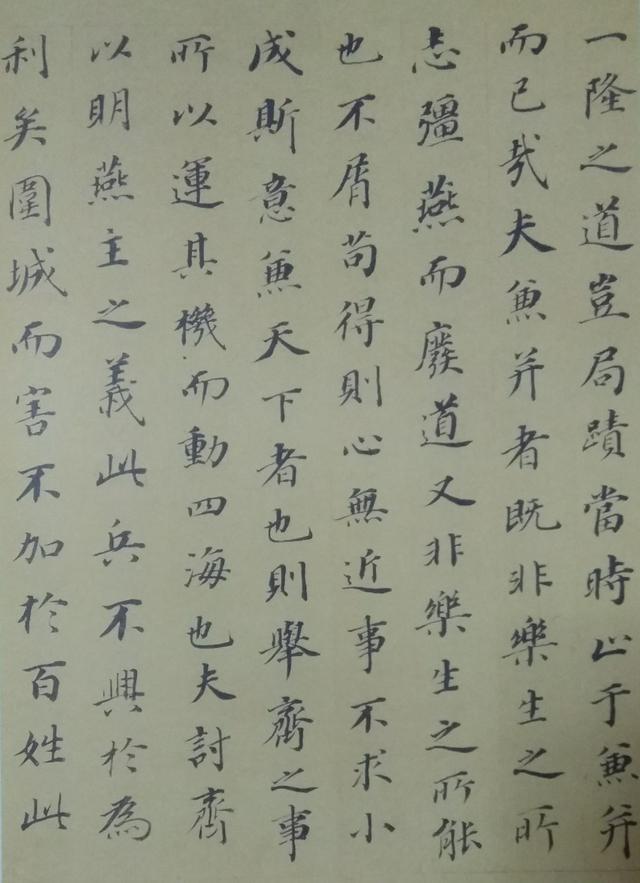 一隆之道豈局蹟當時止于兼并
而已哉夫兼并者既非樂生之所
志彊燕而廢道又非樂生之所能
也不屑苟得則心無近事不求小
成斯意兼天下者也則舉齊之事
所以運其機而動四海也夫討齊
以明燕主之義此兵不興於為
利矣圍城而害不加於百姓此